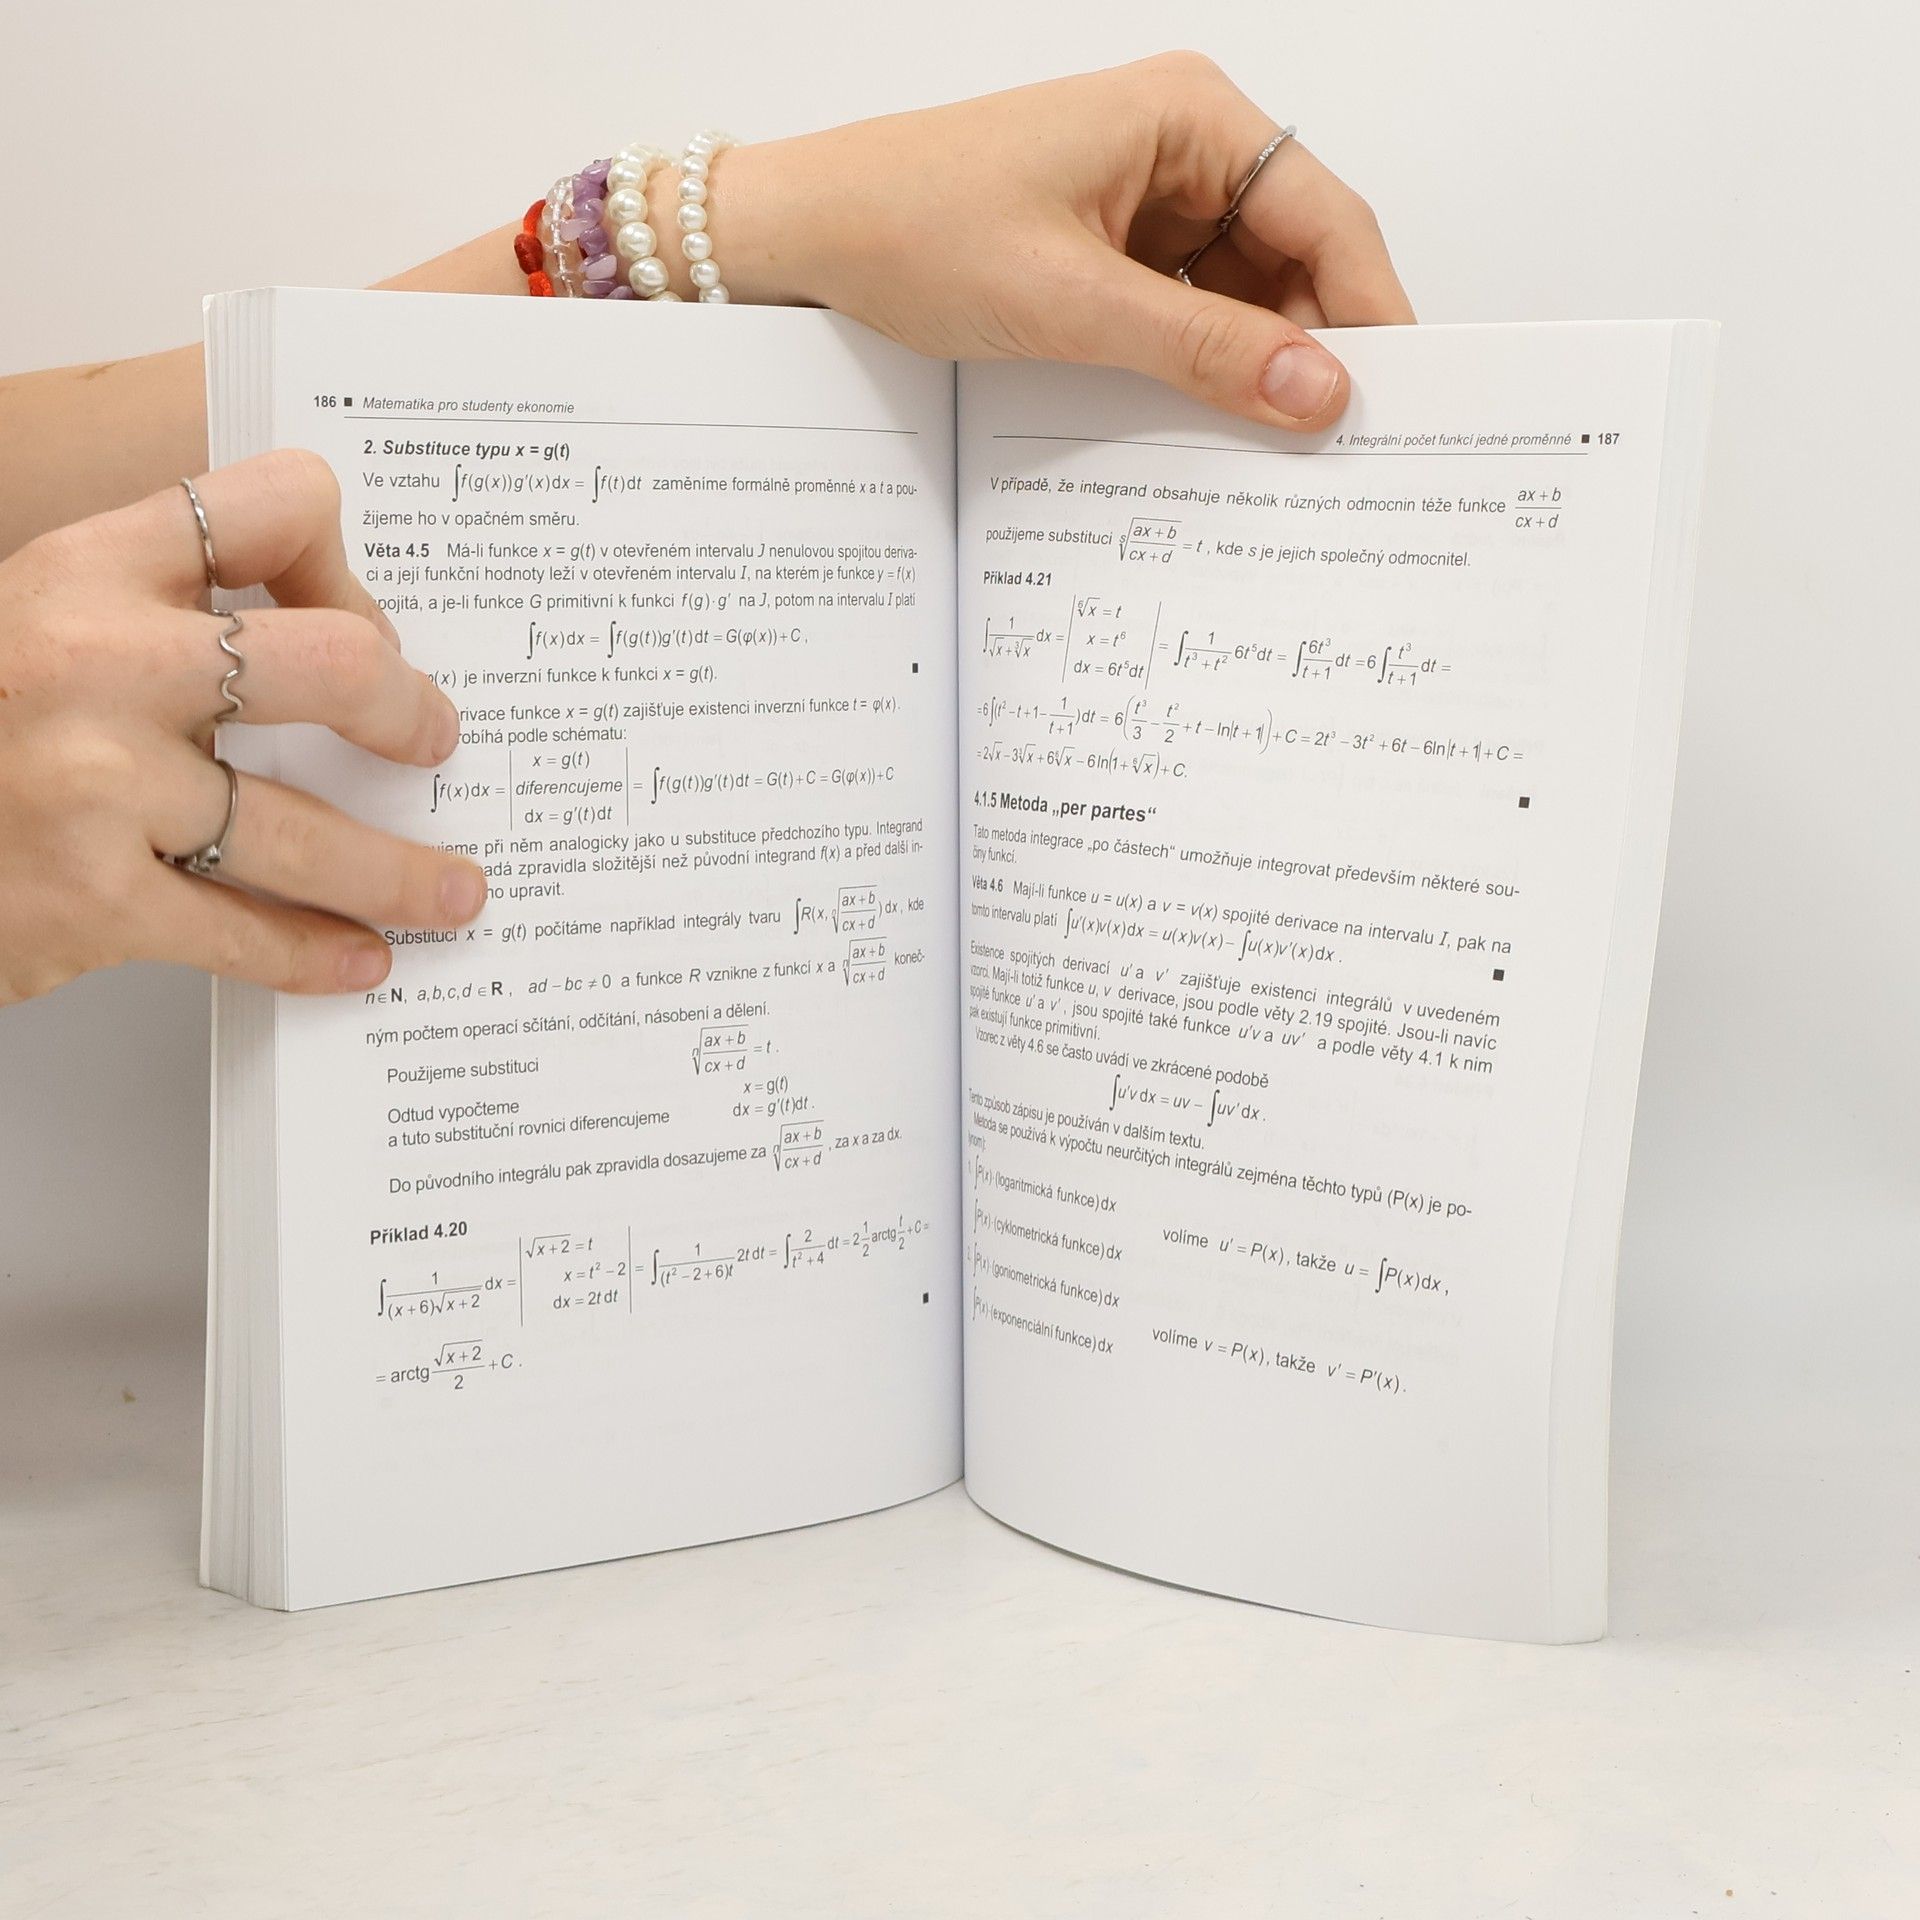 186 ■ Matematika pro studenty ekonomie
2. Substituce typu x = g(t)
Ve vztahu ∫f(g(x))g′(x)dx = ∫f(t)dt zaměníme formálně proměnné x a t a pou-
žijeme ho v opačném směru.
Věta 4.5 Má-li funkce x = g(t) v otevřeném intervalu J nenulovou spojitou deriva-
ci a její funkční hodnoty leží v otevřeném intervalu I, na kterém je funkce y = f(x)
pojitá, a je-li funkce G primitivní k funkci f(g)·g′ na J, potom na intervalu I platí
∫f(x)dx = ∫f(g(t))g′(t)dt = G(φ(x))+C,
(x) je inverzní funkce k funkci x = g(t). ■
rivace funkce x = g(t) zajišťuje existenci inverzní funkce t = φ(x).
robíhá podle schématu:
∫f(x)dx = | x = g(t) diferencujeme dx = g′(t)dt | = ∫f(g(t))g′(t)dt = G(t)+C = G(φ(x))+C
ujeme při něm analogicky jako u substituce předchozího typu. Integrand
adá zpravidla složitější než původní integrand f(x) a před další in-
ho upravit.
Substitucí x = g(t) počítáme například integrály tvaru ∫R(x, ⁿ√((ax+b)/(cx+d)))dx, kde
n∈N, a,b,c,d ∈R, ad − bc ≠ 0 a funkce R vznikne z funkcí x a ⁿ√((ax+b)/(cx+d)) koneč-
ným počtem operací sčítání, odčítání, násobení a dělení.
Použijeme substituci ⁿ√((ax+b)/(cx+d)) = t.
Odtud vypočteme x = g(t)
a tuto substituční rovnici diferencujeme dx = g′(t)dt.
Do původního integrálu pak zpravidla dosazujeme za ⁿ√((ax+b)/(cx+d)), za x a za dx.
Příklad 4.20
∫1/((x+6)√(x+2)) dx = | √(x+2) = t x = t² − 2 dx = 2t dt | = ∫1/((t² − 2 + 6)t) 2t dt = ∫2/(t² + 4) dt = 2 1/2 arctg t/2 + C =
= arctg √(x+2)/2 + C. ■
4. Integrální počet funkcí jedné proměnné ■ 187
V případě, že integrand obsahuje několik různých odmocnin téže funkce (ax+b)/(cx+d)
použijeme substituci ˢ√((ax+b)/(cx+d)) = t, kde s je jejich společný odmocnitel.
Příklad 4.21
∫1/(√x+³√x) dx = | ⁶√x = t x = t⁶ dx = 6t⁵dt | = ∫1/(t³ + t²) 6t⁵dt = ∫6t³/(t+1) dt = 6∫t³/(t+1) dt =
=6∫(t² − t + 1 − 1/(t+1))dt = 6(t³/3 − t²/2 + t − ln|t+1|)+C = 2t³ − 3t² + 6t − 6ln|t+1|+C =
= 2√x − 3³√x + 6⁶√x − 6ln(1+⁶√x)+C. ■
4.1.5 Metoda „per partes“
Tato metoda integrace „po částech“ umožňuje integrovat především některé sou-
činy funkcí.
Věta 4.6 Mají-li funkce u = u(x) a v = v(x) spojité derivace na intervalu I, pak na
tomto intervalu platí ∫u′(x)v(x)dx = u(x)v(x) − ∫u(x)v′(x)dx. ■
Existence spojitých derivací u′ a v′ zajišťuje existenci integrálů v uvedeném
vzorci. Mají-li totiž funkce u, v derivace, jsou podle věty 2.19 spojité. Jsou-li navíc
spojité funkce u′ a v′, jsou spojité také funkce u′v a uv′ a podle věty 4.1 k nim
pak existují funkce primitivní.
Vzorec z věty 4.6 se často uvádí ve zkrácené podobě
∫u′v dx = uv − ∫uv′ dx.
Tento způsob zápisu je používán v dalším textu.
Metoda se používá k výpočtu neurčitých integrálů zejména těchto typů (P(x) je po-
lynom):
1. ∫P(x)·(logaritmická funkce)dx
∫P(x)·(cyklometrická funkce)dx volíme u′ = P(x), takže u = ∫P(x)dx,
2. ∫P(x)·(goniometrická funkce)dx
∫P(x)·(exponenciální funkce)dx volíme v = P(x), takže v′ = P′(x).